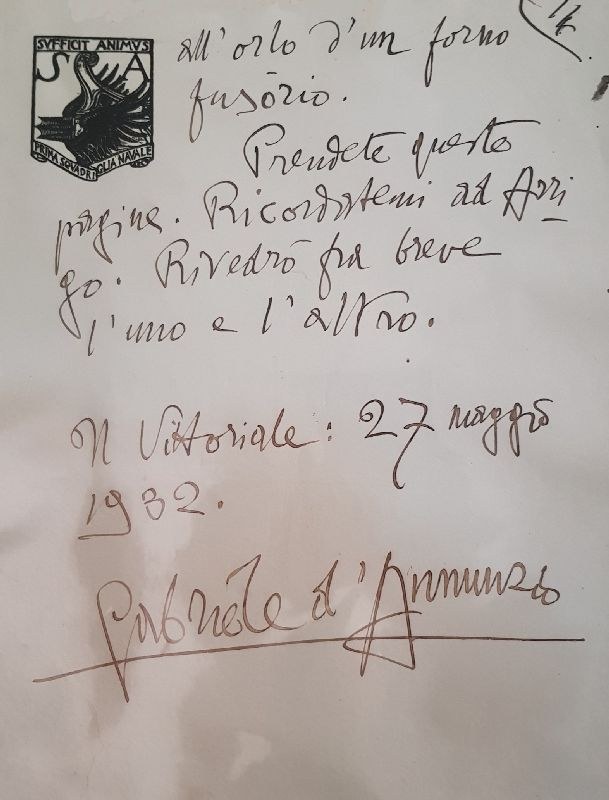 SVFFICIT ANIMVS
S A
PRIMA SQVADRIGLIA NAVALE
all'orlo d'un forno
fusòrio.
Prendete queste
pagine. Ricordatemi ad Arri
go. Rivedrò fra breve
l'uno e l'altro.
Il Vittoriale: 27 maggio
1932.
Gabriele d'Annunzio